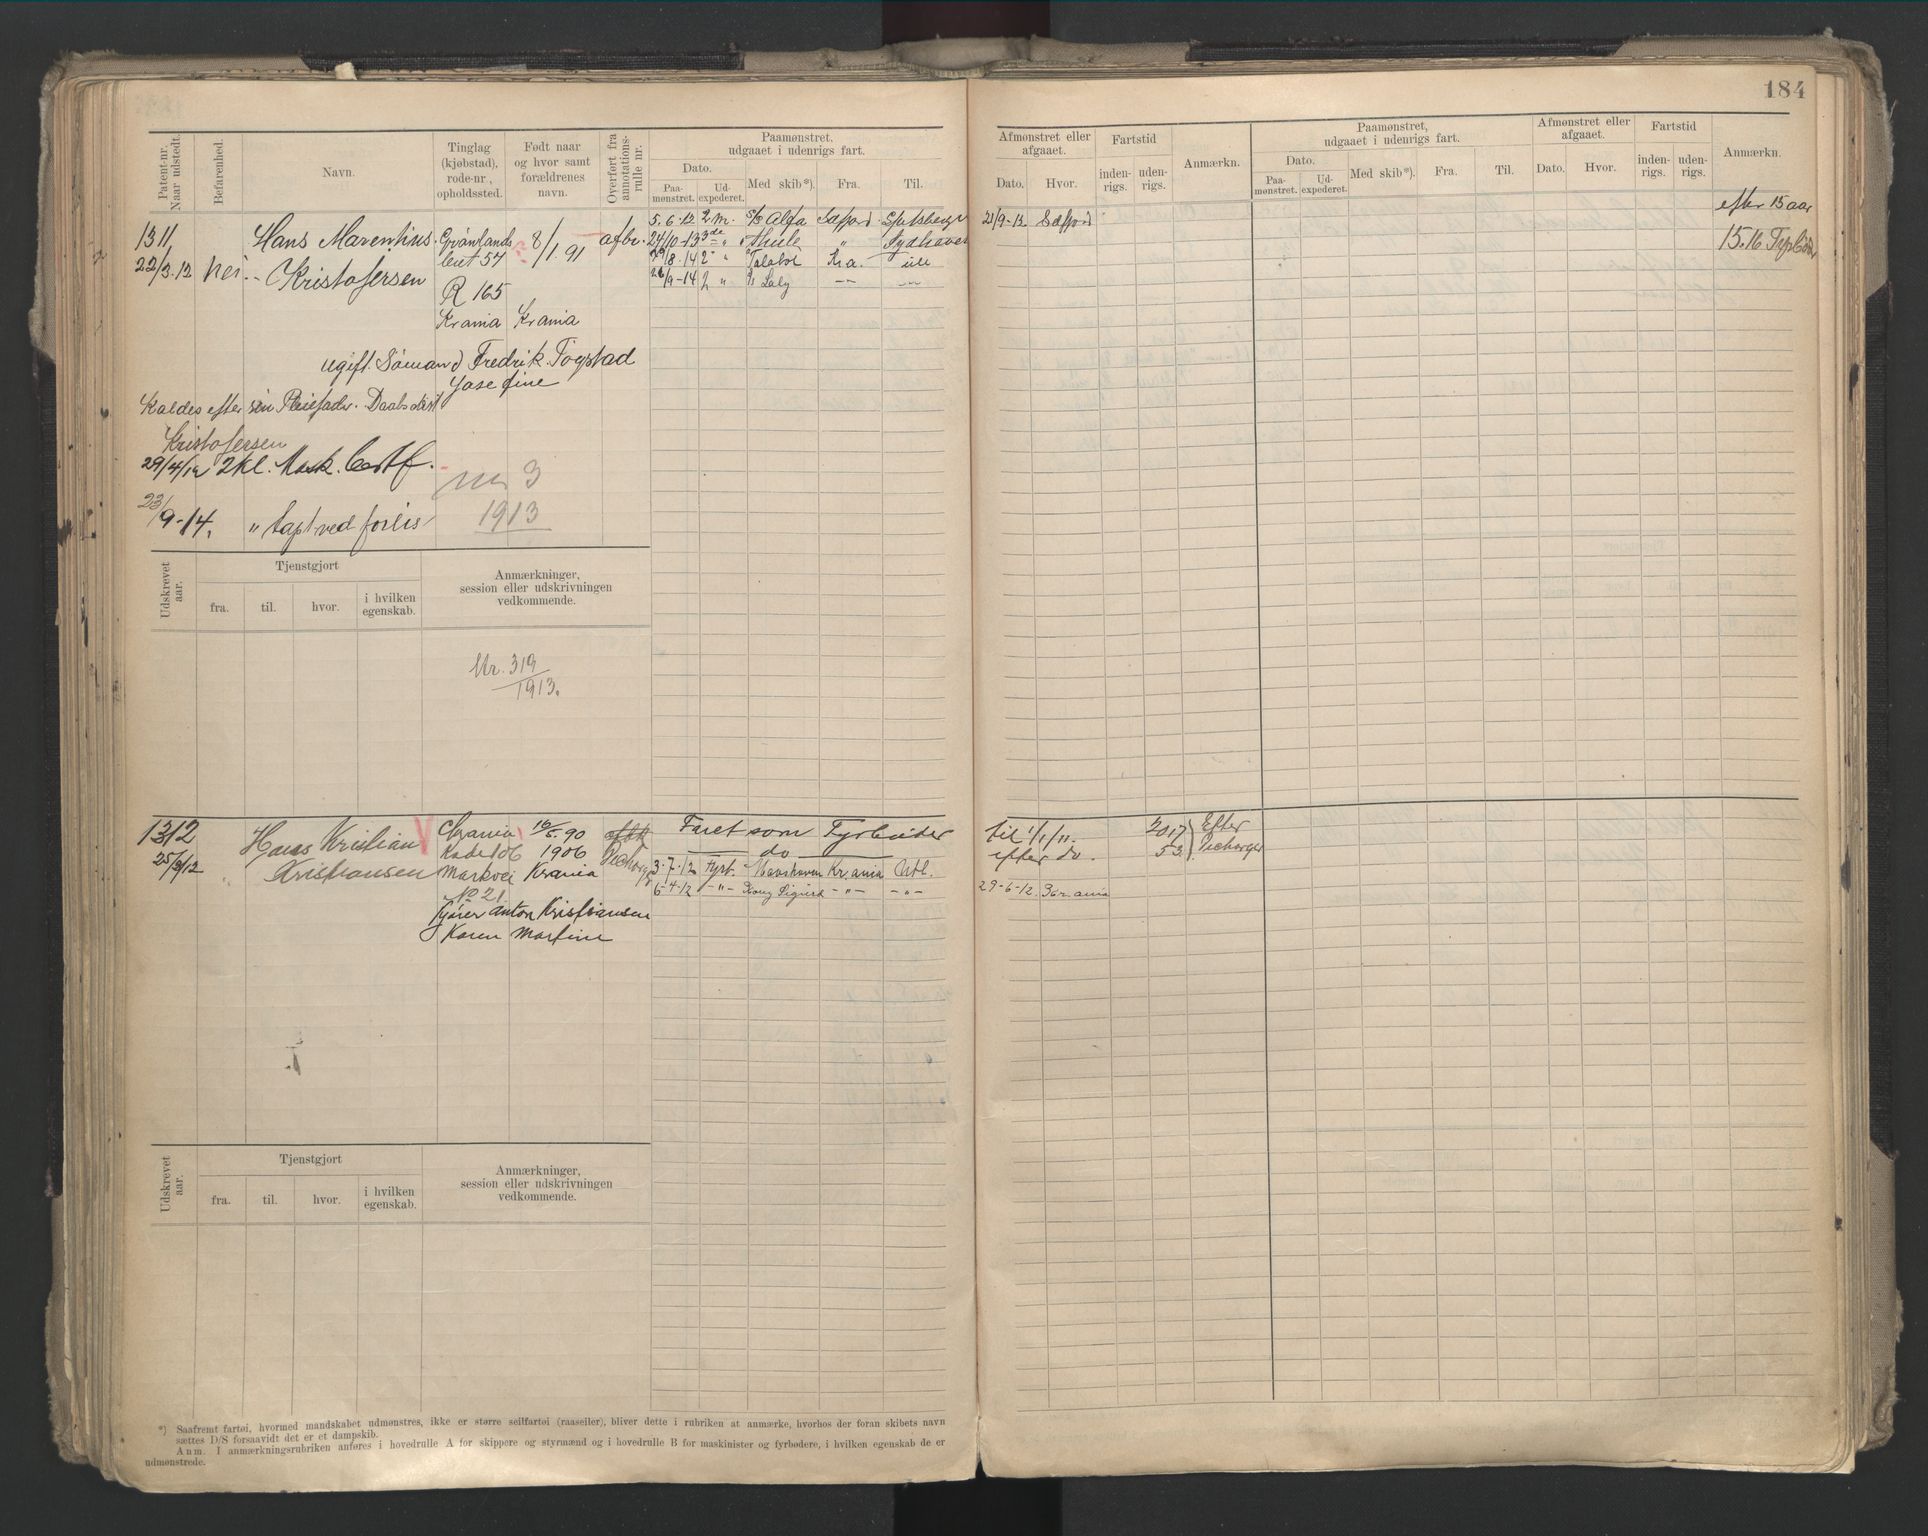 184
Patent-nr. Naar udstedt.
Befarenhed.
Navn.
Tinglag (kjøbstad), rode-nr., opholdssted.
Født naar og hvor samt forældrenes navn.
Overført fra annotations-rulle nr.
Paamønstret, udgaaet i udenrigs fart.
Dato.
Paa-mønstret.
Ud-expederet.
Med skib*).
Fra.
Til.
Afmønstret eller afgaaet.
Dato.
Hvor.
Fartstid
inden-rigs.
uden-rigs.
Anmærkn.
Paamønstret, udgaaet i udenrigs fart.
Dato.
Paa-mønstret.
Ud-expederet.
Med skib*).
Fra.
Til.
Afmønstret eller afgaaet.
Dato.
Hvor.
Fartstid
inden-rigs.
uden-rigs.
Anmærkn.
1311
22/3.12
Nei
Hans Marentius
Kristofersen
Grønlands
leiret 57
R 165
Krania
8/1.91
Krania
afbr.
5.6.12 2 m. S/S Alfa Spitsbergen
24/10-13 3die " Thule " Sydhavet
29/8.14 2 " Kra.
26/9-14 2 "
21/9-13.
efter 15 aar
15.16 Fyrbøder
ugift. Sømand Fredrik Togstad
Josefine
Kaldes efter sin Pleiefader. Daabsattest
Kristofersen
29/4/12 2 kl. Mask. Certf.
No 3
1913
23/9-14. " tapt ved forlis
Udskrevet aar.
Tjenstgjort
fra.
til.
hvor.
i hvilken egenskab.
Anmærkninger, session eller udskrivningen vedkommende.
Nr. 319
1913.
1312
25/3/12
Hans Kristian
Kristiansen
Krania
Rode 106
Markvei
No 21
16/5.90
1906
Krania
Faret som Fyrbøder
do
3.7.12 Fyrb. Krania Utl.
6-4-12 -"- Kong Sigurd -"- -"-
Fyrbøder Anton Kristiansen
Karen Martine
til 1/1/11.
efter do.
29-6-12. Krania
Efter
Udskrevet aar.
Tjenstgjort
fra.
til.
hvor.
i hvilken egenskab.
Anmærkninger, session eller udskrivningen vedkommende.
*) Saafremt fartøi, hvormed mandskabet udmønstres, ikke er større seilfartøi (raaseiler), bliver dette i rubriken at anmærke, hvorhos der foran skibets navn
sættes D/S forsaavidt det er et dampskib.
Anm. I anmærkningsrubriken anføres i hovedrulle A for skippere og styrmænd og i hovedrulle B for maskinister og fyrbødere, i hvilken egenskab de er
udmønstrede.